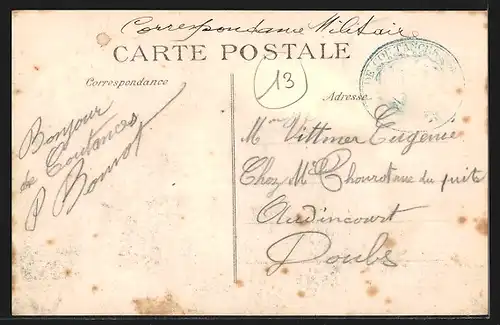 Correspondance Militaire
CARTE POSTALE
Correspondance
13
Adresse
DE COUTANCES
Bonjour
de Coutances
Mme Vittmer Eugenie
Chez Mr Chourot rue du puits
Audincourt
Doubs